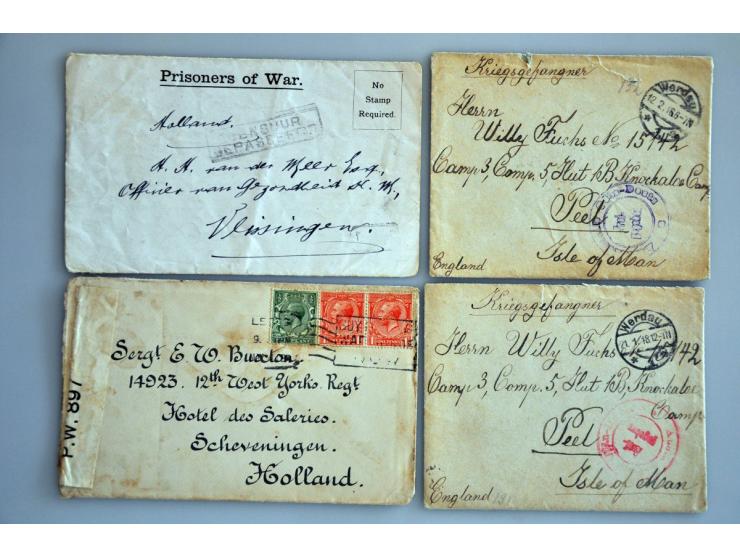 Prisoners of War.
No
Stamp
Required.
Holland.
CENSUUR
GEPASSEERD
H. H. van der Meer Esq.,
Officier van Gezondheid K. M.,
Vlissingen.
Kriegsgefangner
Werdau
12.2.16 5-6N
Herrn
Willy Fuchs No 15142
Camp 3, Comp. 5, Hut 1B, Knockaloe Camp
Peel
Isle of Man
England
P.W. 897
BUY
WAR
Sergt E. W. Buxton,
14923. 12th West Yorks. Regt
Hotel des Galeries.
Scheveningen.
Holland.
Kriegsgefangner
Werdau
Herrn Willy Fuchs
142
Camp 3, Comp. 5, Hut 1B, Knockaloe
Camp
Peel
Isle of Man
England